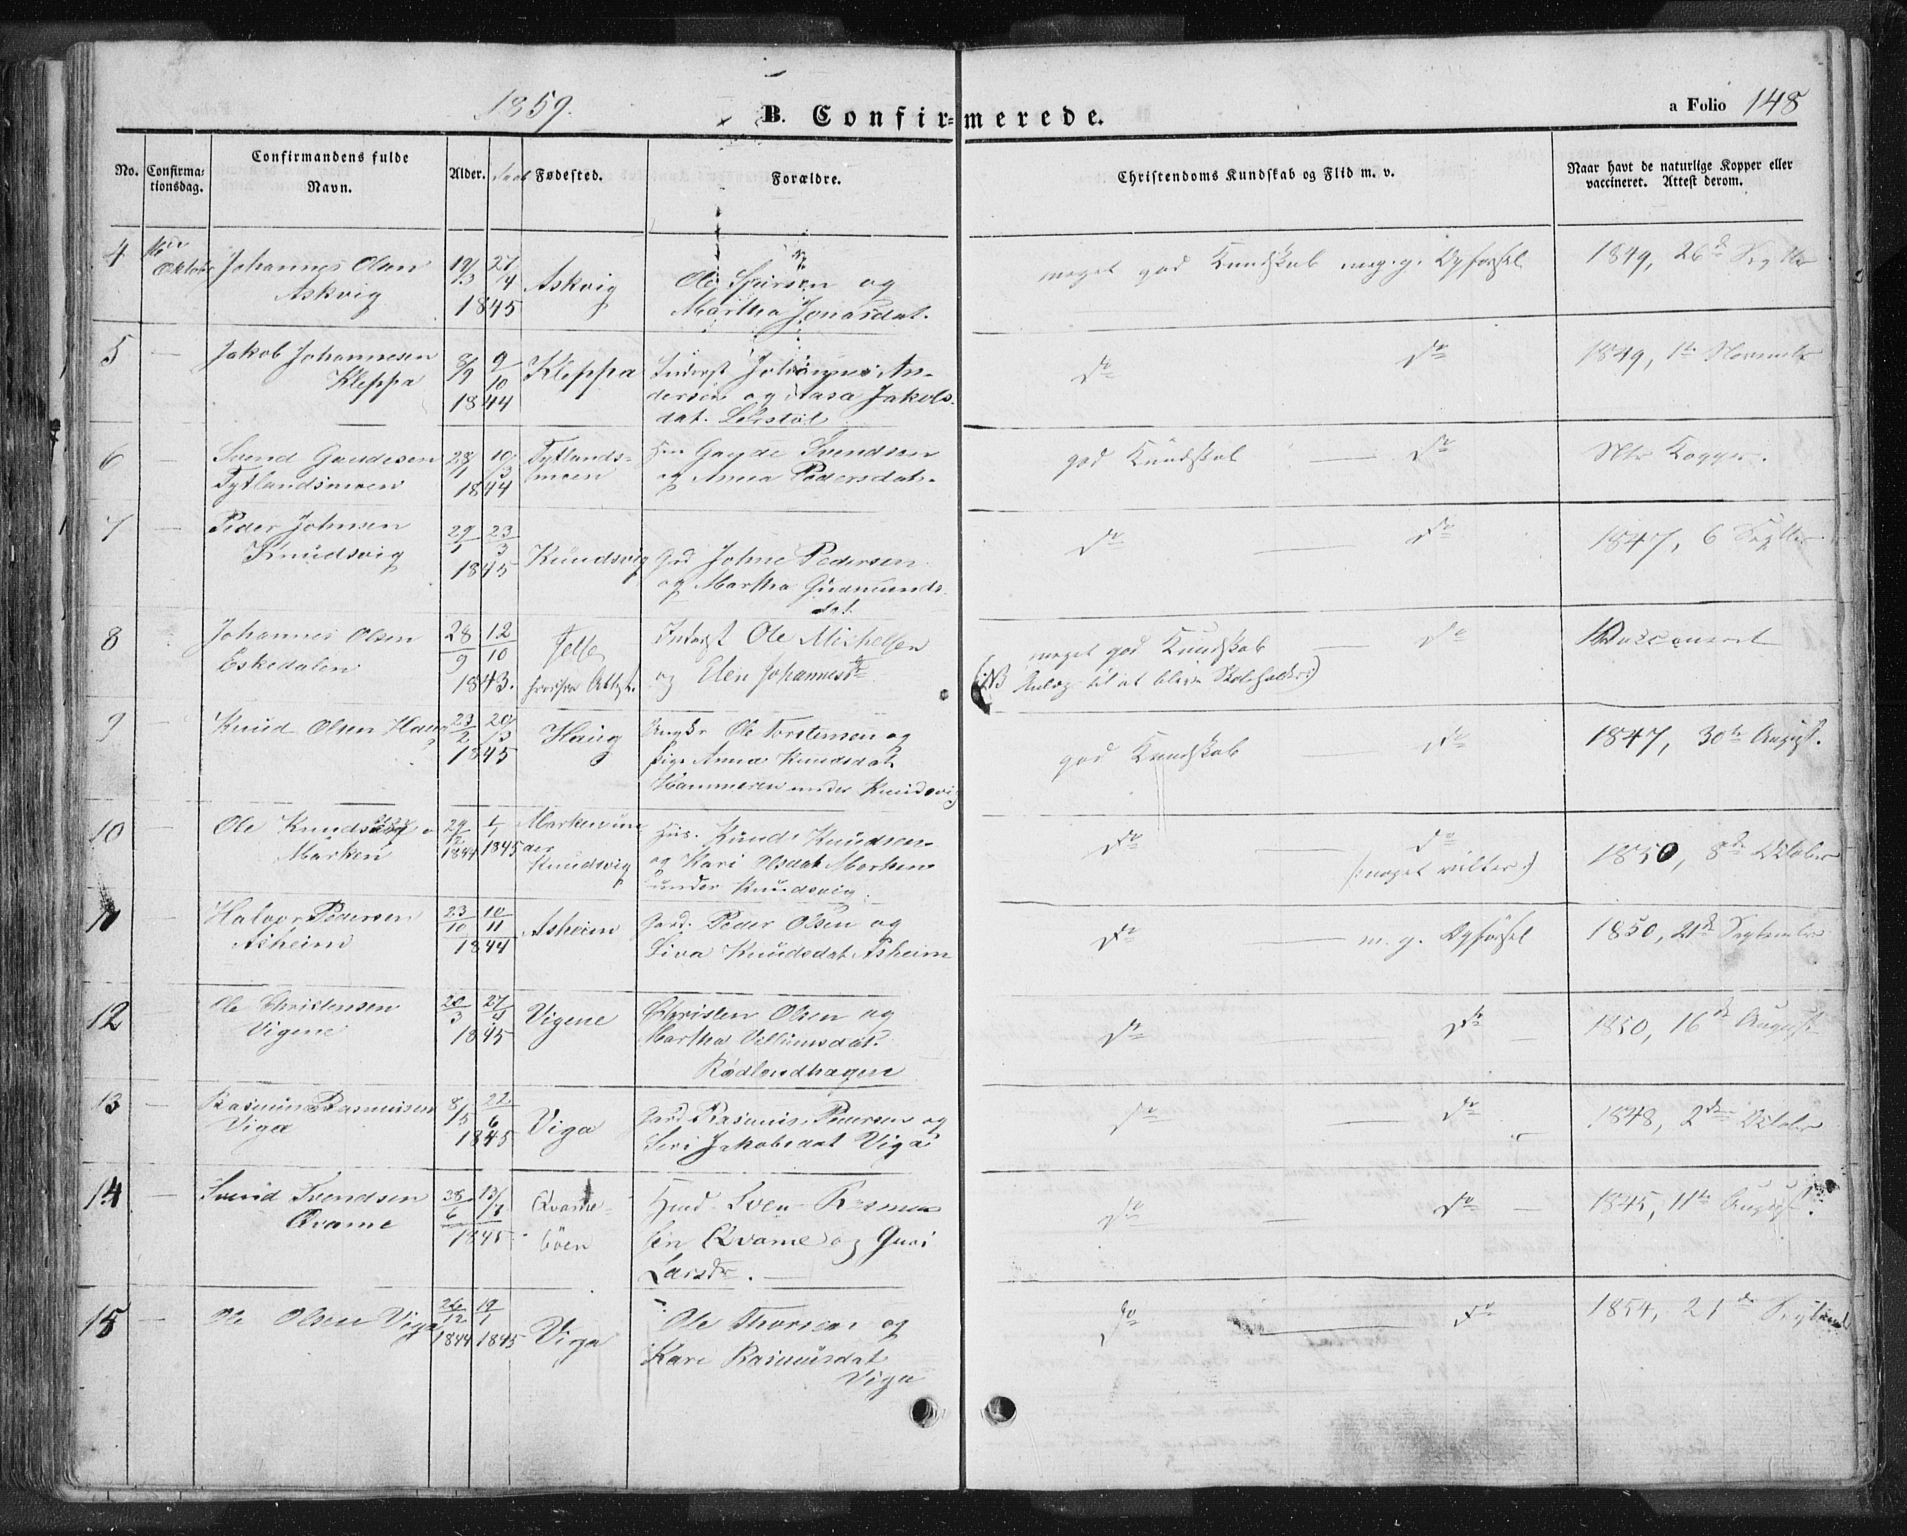 1859.
B. Confirmerede.
a Folio 148
No. Confirmationsdag. Confirmandens fulde Navn. Alder. Daab Fødested. Forældre. Christendoms Kundskab og Flid m. v. Naar havt de naturlige Kopper eller vaccineret. Attest derom.
4 Oktob Johannes Olsen 19/3 27/4 Askvig Ole og meget god Kundskab meg. g. Opførsel 1849, 26de Septbr
Askvig 1845 Martha Jonasdat.
5 — Jakob Johannesen 8/9 9/10 Kleppa Inderst Johannes An- do do 1849, 1te Novembr
Kleppa 1844 dersen og Aasa Jakobs-
dat.
6 — Svend Gaudesen 28/1 10/3 Tytlands- Gaude Svendsen god Kundskab — do
Tytlandsmoen 1844 moen og Anna Pedersdat.
7 — Peder Johnsen 29/1 23/3 do — do 1847, 6 Septbr
Knudsvig 1845 Knudsvig Grd Johne Pedersen
og Martha Gudmunds-
dat.
8 Johannes Olsen 28/9 12/10 Inderst Ole Michelsen meget god Kundskab — do Vaccineret
Eskedalen 1843. og Elen Johannesdr (NB Anlæg til at blive Skoleholder:)
9 — Knud Olsen Haug 23/2 20/3 Haug Ungkr Ole Torstensen og god Kundskab — do 1847, 30te August.
1845 Pige Anna Knudsdat.
Hammeren under Knudsvig
10 — Ole Knudsen 29/12 1/1 Marken un- Hus. Knud Knudsen do — do 1850, 8de Oktober
Marken 1844 1845 der og Kari Olsdat Marken (:noget :)
Knudsvig under Knudsvig
11 — Halvor Pedersen 23/10 10/11 Asheim Gard. Peder Olsen og do — m. g. Opførsel 1850, 21de September
Asheim 1844 Siva Knudsdat Asheim
12 — Ole Christensen 20/3 27/4 Vigene Christen Olsen og do — do 1850, 16de August
Vigene 1845 Martha Villumsdat.
Rødlandhagen
13 — Rasmus Rasmussen 8/5 22/6 Viga Gard Rasmus Pedersen og do — do 1848, 2den Oktober
Viga 1845 Siri Jakobsdat Viga
14 — Svend Svendsen 13/7 Qvame- Sven Rasmus- do — do — 1845, 11te August.
Qvame 1845 bøen sen Qvame og Guri
Larsdr. —
15 — Ole Olsen Viga 26/12 19/1 Viga Ole Thorsen og do — do 1854, 21de Septemb
1844 1845 Kari Rasmusdat
Viga